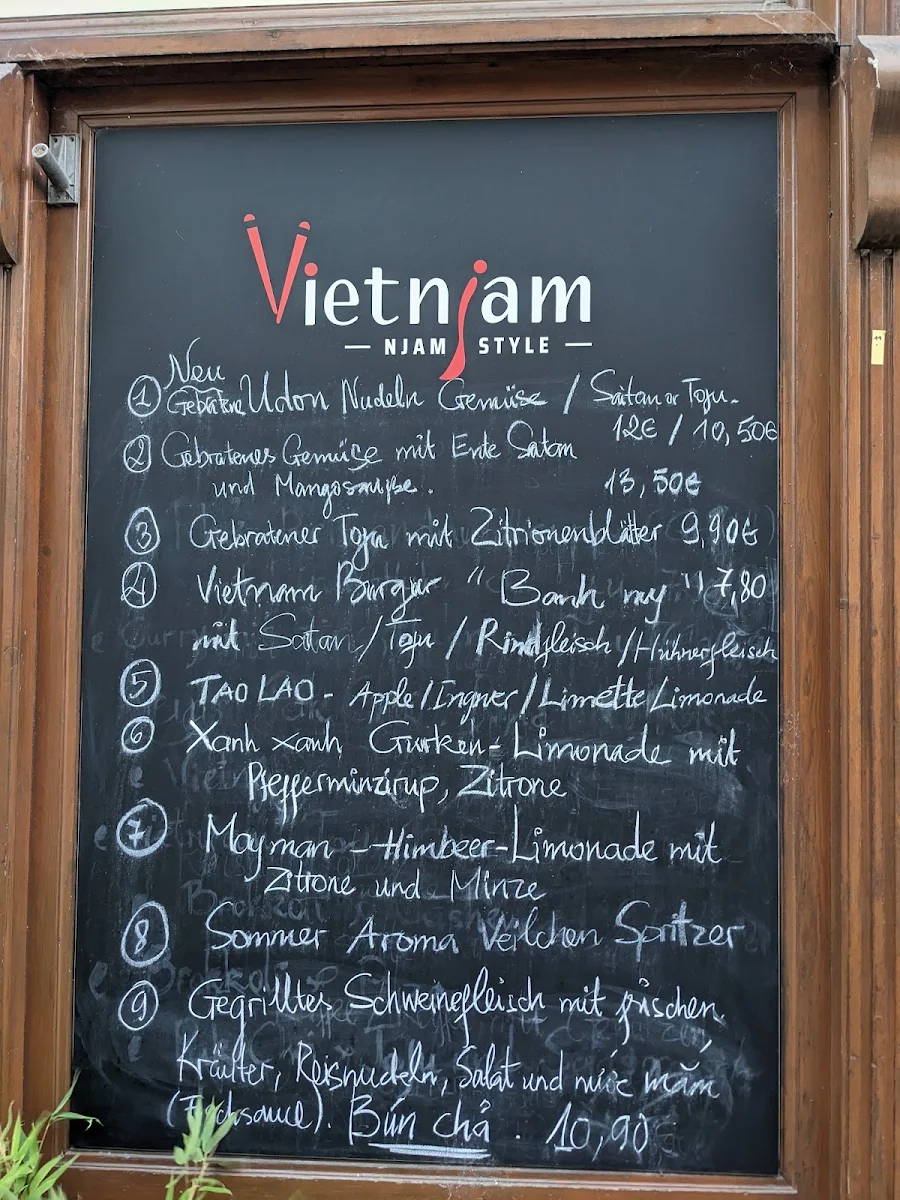 Vietnjam
— NJAM STYLE —
Neu
① Gebratene Udon Nudeln Gemüse / Saitan or Tofu.
12€ / 10,50€
② Gebratenes Gemüse mit Ente Satan
und Mangosauße. 13,50€
③ Gebratener Tofu mit Zitrionenblätter 9,90€
④ Vietnam Burgur "Banh my" 7,80
mit Satan / Tofu / Rindfleisch / Hühnerfleisch
⑤ TAO LAO - Apple / Ingner / Limette / Limonade
⑥ Xanh xanh Gurken - Limonade mit
Pfefferminzirup, Zitrone
⑦ May man - Himbeer - Limonade mit
Zitrone und Minze
⑧ Sommer Aroma Veilchen Spritzer
⑨ Gegrilltes Schweinefleisch mit frischen
Kräuter, Reisnudeln, Salat und nước mắm
(Fischsauce). Bún chả . 10,90